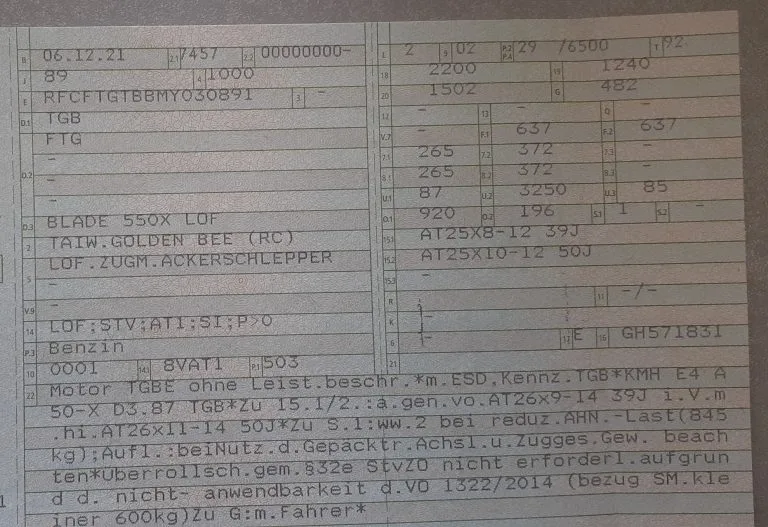 B 06.12.21 2.1 /457 2.2 00000000-
J 89 4 1000
E RFCFTGTBBMY030891 3 -
D.1 TGB
FTG
D.2 -
-
-
D.3 BLADE 550X LOF
2 TAIW.GOLDEN BEE (RC)
LOF.ZUGM.ACKERSCHLEPPER
5 -
-
V.9
14 LOF;STV;AT1;SI;P>0
P.3 Benzin
10 0001 14.1 8VAT1 P.1 503
L 2 9 02 P.2 P.4 29 /6500 T 92
18 2200 19 1240
20 1502 G 482
12 - 13 - Q -
V.7 - F.1 637 F.2 637
7.1 265 7.2 372 7.3 -
8.1 265 8.2 372 8.3 -
U.1 87 U.2 3250 U.3 85
O.1 920 O.2 196 S.1 1 S.2 -
15.1 AT25X8-12 39J
15.2 AT25X10-12 50J
15.3 -
R 11 -/-
K -
6 - 17 E 16 GH571831
21
22 Motor TGBE ohne Leist.beschr.*m.ESD,Kennz.TGB*KMH E4 A
50-X D3.87 TGB*Zu 15.1/2.:a.gen.vo.AT26x9-14 39J i.V.m
.hi.AT26x11-14 50J*Zu S.1:ww.2 bei reduz.AHN.-Last(845
kg);Aufl.:beiNutz.d.Gepäcktr.Achsl.u.Zugges.Gew. beach
ten*Überrollsch.gem.§32e StVZO nicht erforderl.aufgrun
d d. nicht- anwendbarkeit d.VO 1322/2014 (bezug SM.kle
iner 600kg)Zu G:m.Fahrer*